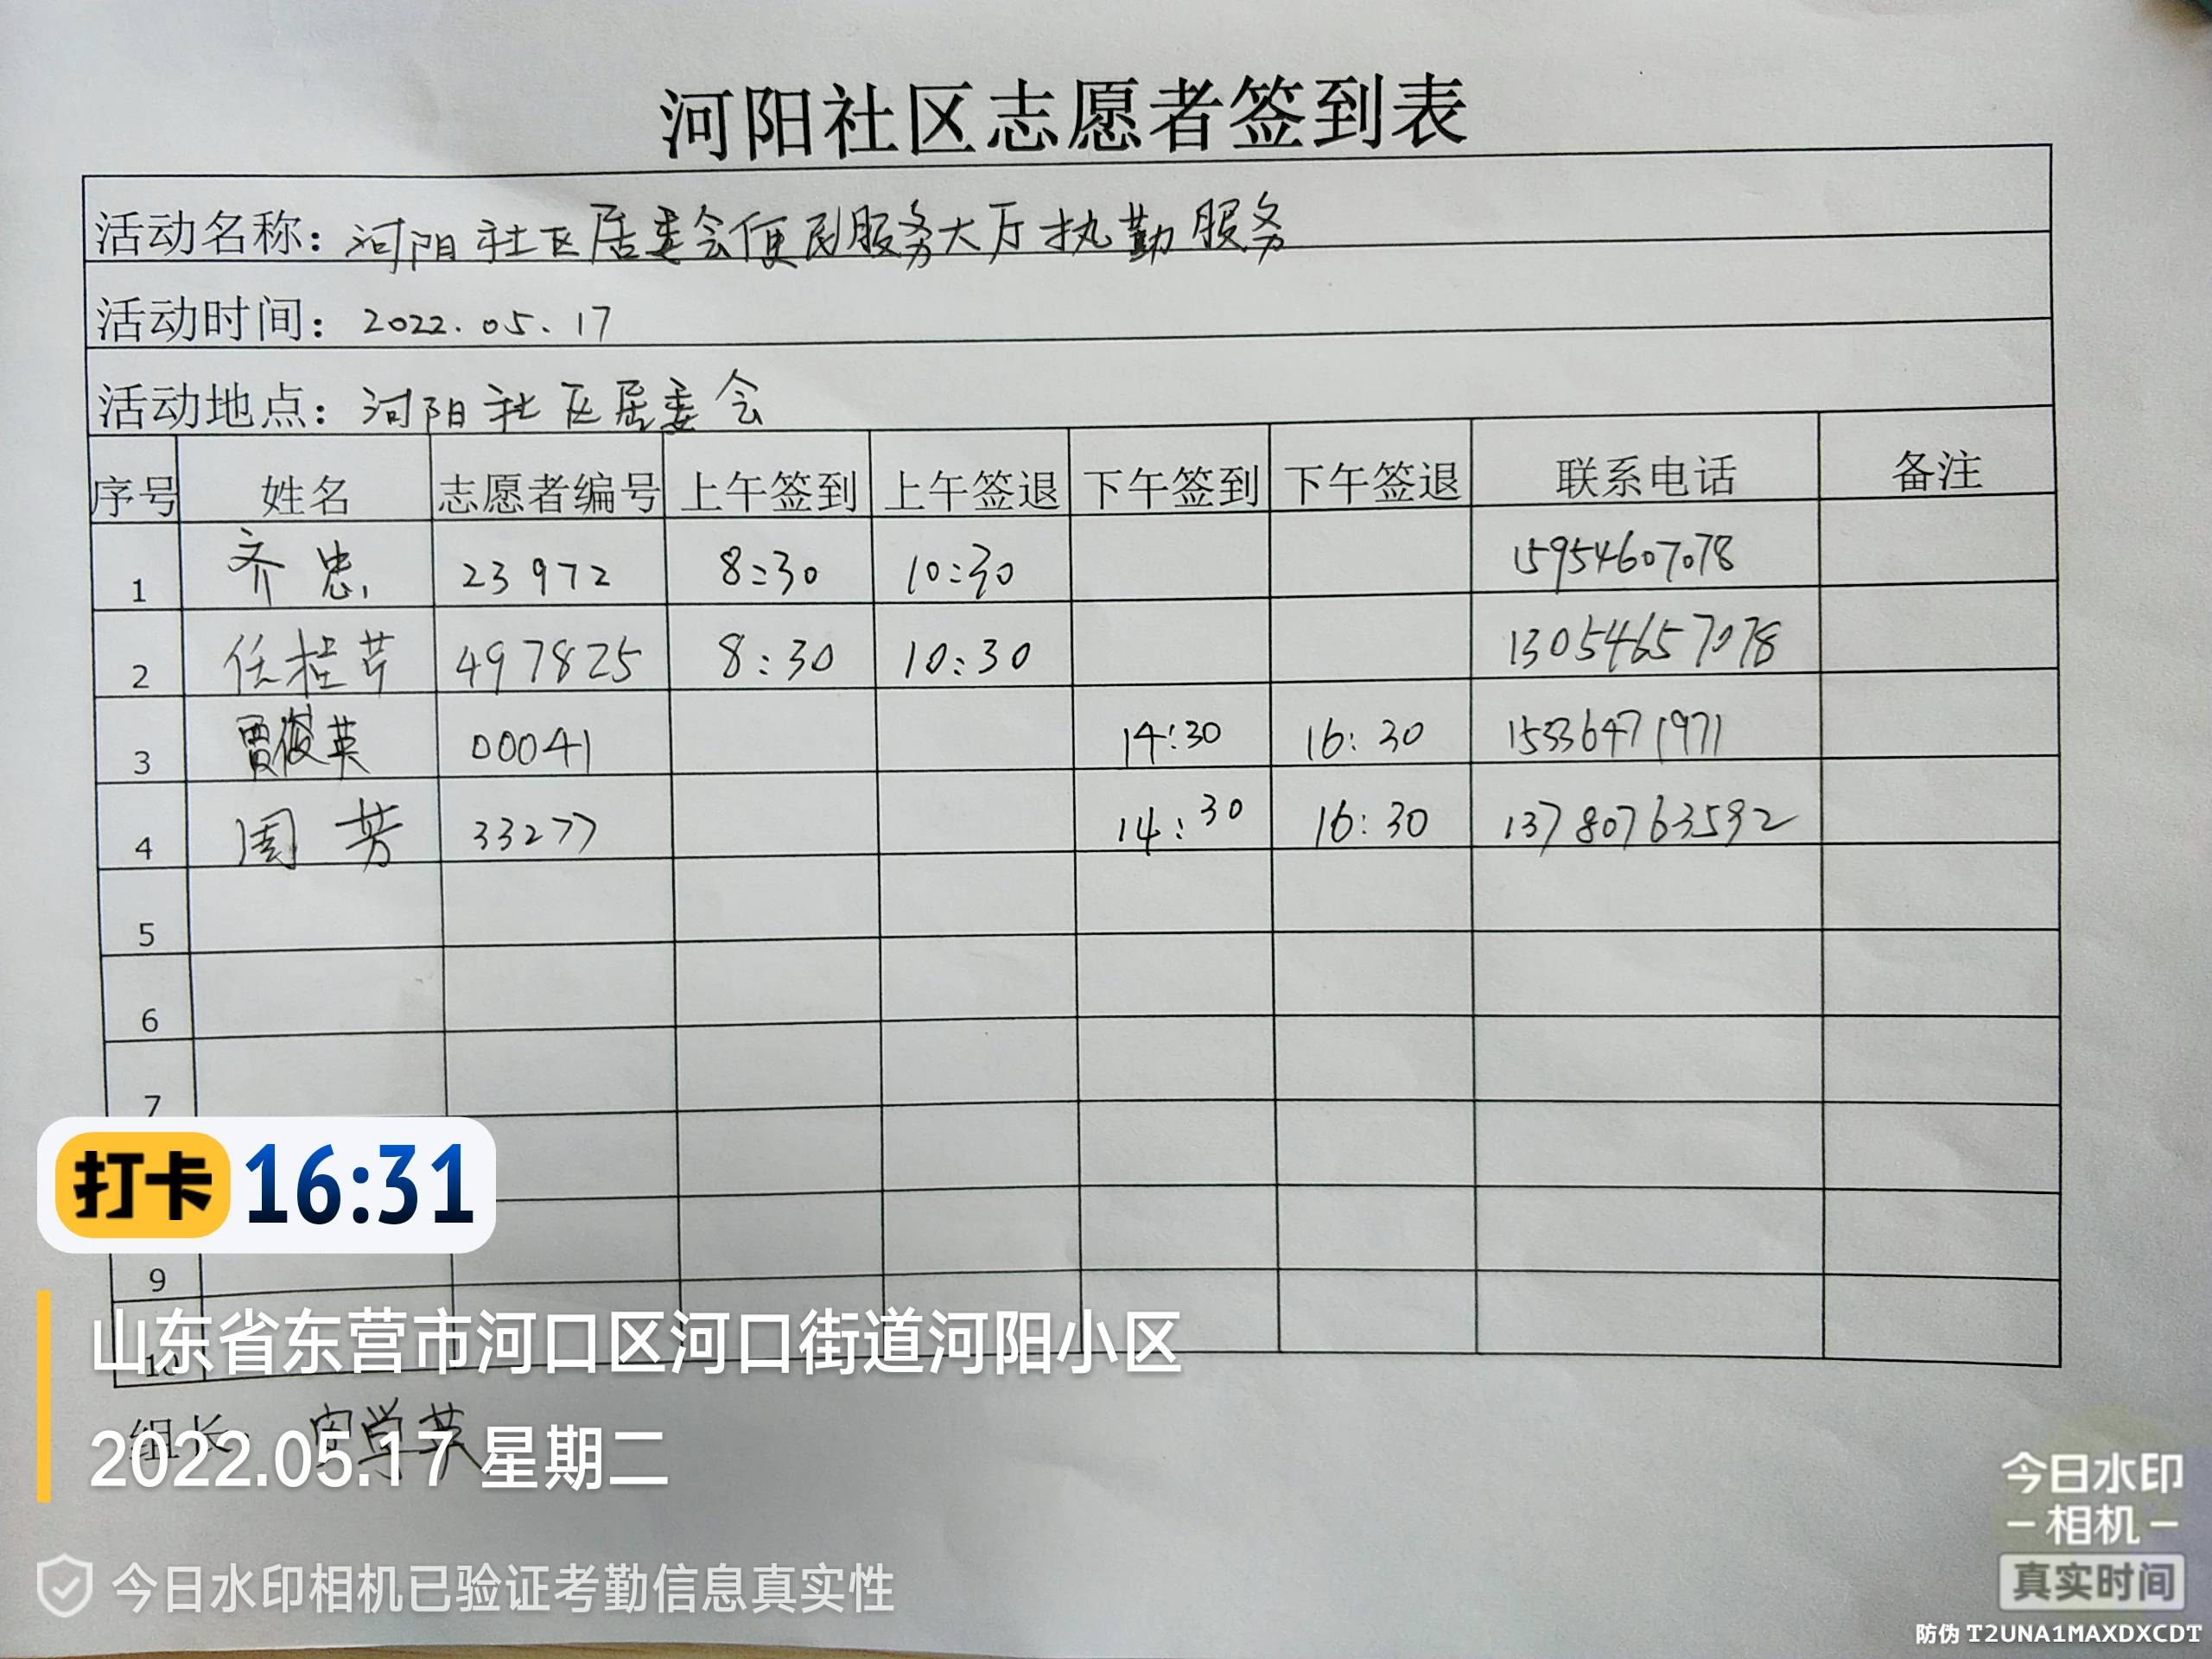 河阳社区志愿者签到表
活动名称：河阳社区居委会便民服务大厅执勤服务
活动时间：2022.05.17
活动地点：河阳社区居委会
序号 姓名 志愿者编号 上午签到 上午签退 下午签到 下午签退 联系电话 备注
1 齐忠 23972 8:30 10:30 15954607078
2 任桂芹 497825 8:30 10:30 13054657078
3 贾俊英 00041 14:30 16:30 15336471971
4 周芳 33277 14:30 16:30 13780763592
5
6
7
打卡 16:31
9
10
山东省东营市河口区河口街道河阳小区
组长：
2022.05.17 星期二
今日水印相机已验证考勤信息真实性
今日水印
相机
真实时间
防伪 T2UNA1MAXDXCDT